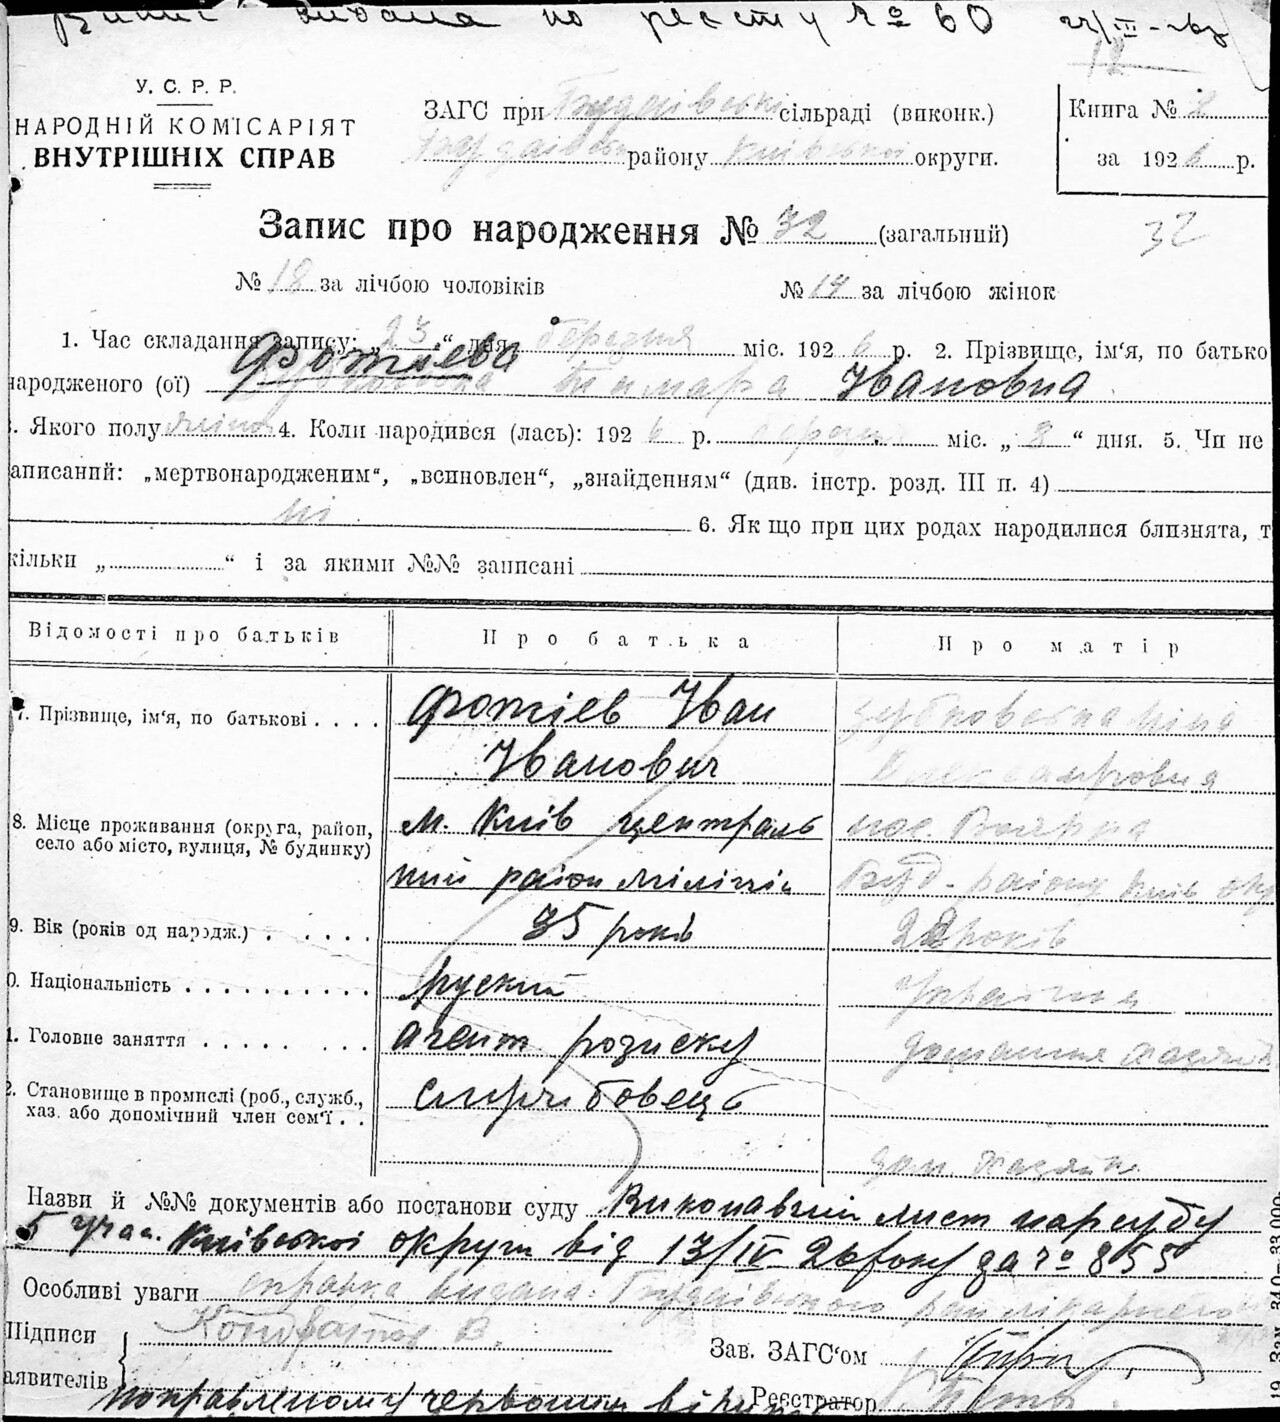 видана по реєсту № 60
12
У. С. Р. Р.
НАРОДНІЙ КОМІСАРІЯТ
ВНУТРІШНІХ СПРАВ
ЗАГС при Будаївські сільраді (виконк.)
району Київської округи.
Книга № 2
за 1926 р.
Запис про народження № 32 (загальний)
32
№ 18 за лічбою чоловіків
№ 14 за лічбою жінок
1. Час складання запису: „23“ дня березня міс. 1926 р. 2. Прізвище, ім'я, по батько
народженого (ої) Фотієва Тамара Івановна
. Якого полу жіноч 4. Коли народився (лась): 1926 р. березня міс. „8“ дня. 5. Чи не
аписаний: „мертвонародженим“, „всиновлен“, „знайденням“ (див. інстр. розд. III п. 4)
ні 6. Як що при цих родах народилися близнята, т
кільки „ “ і за якими №№ записані
Відомості про батьків Про батька Про матір
7. Прізвище, ім'я, по батькові . . . . Фотієв Іван Зубковська Ніна
Іванович Олександровна
8. Місце проживання (округа, район, село або місто, вулиця, № будинку) м. Київ централь пос. Боярка
ний район міліції Буд. району Київ окр
9. Вік (років од народж.) . . . . . 35 років 22 років
0. Національність . . . . . . . . . . руский Українка
1. Головне заняття . . . . . . . . . агент розиску домашня хазяйк
2. Становище в промислі (роб., служб., хаз. або допомічний член сем'ї . . служтбовець
дом. хазяйк
Назви й №№ документів або постанови суду Виконавчий лист нарсуду
5 учас. Київської округи від 13/IV 26 року за № 855
Особливі уваги справка видана Будаївського райлікарнею
Підписи
аявителів
Кондратюк В.
Зав. ЗАГС'ом
Реєстратор
поправленому червоним вірити